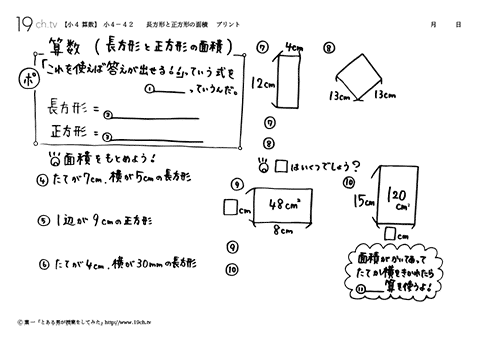 19ch.tv 【小4 算数】 小4-42 長方形と正方形の面積 プリント 月 日
算数 (長方形と正方形の面積)
ポ
「これを使えば答えが出せる!」っていう式を
① ______ っていうんだ。
長方形 = ② ______
正方形 = ③ ______
面積をもとめよう!
④ たてが7cm、横が5cmの長方形
⑤ 1辺が9cmの正方形
⑥ たてが4cm、横が30mmの長方形
⑦ 4cm
12cm
⑧
13cm 13cm
⑦
⑧
□はいくつでしょう?
⑨
□cm 48cm²
8cm
⑩
15cm 120cm²
□cm
⑨
⑩
面積がかいてあって
たてか横をきかれたら
⑪ ______ 算を使うよ!
ⓒ葉一「とある男が授業をしてみた」http://www.19ch.tv